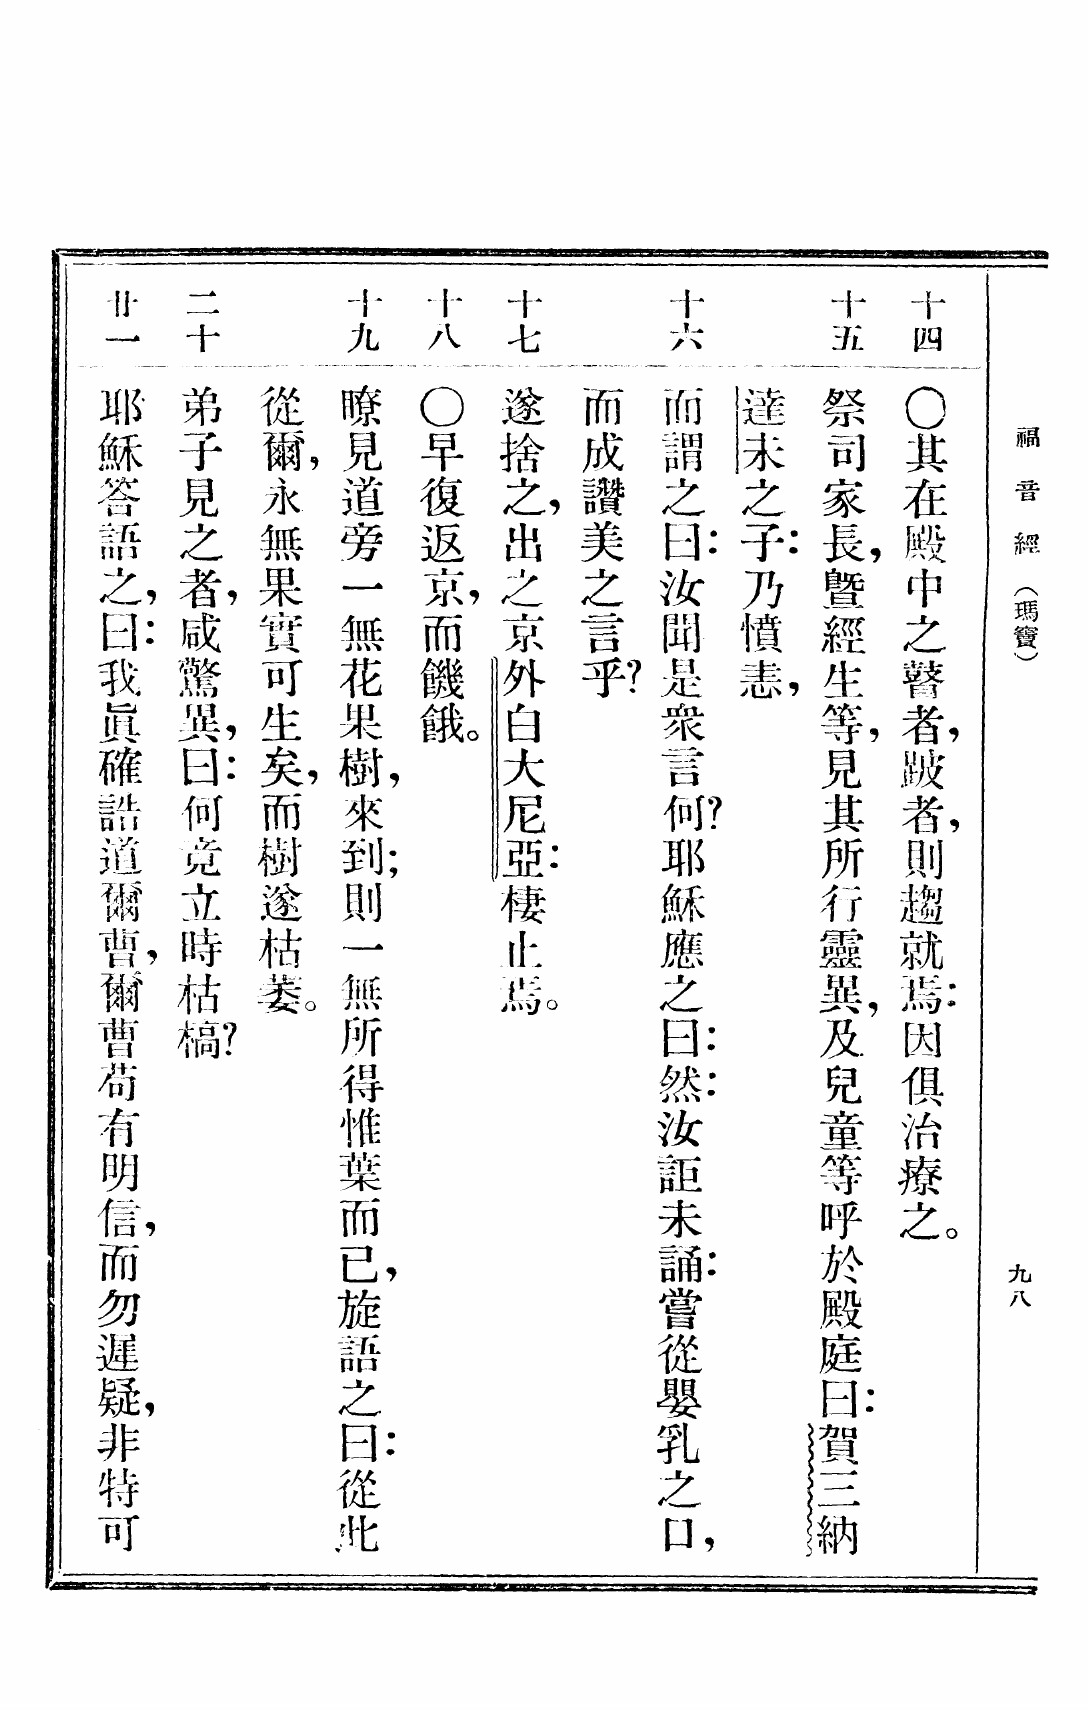 福音經（瑪竇）
九八
十四
〇其在殿中之瞽者，跛者，則趨就焉：因俱治療之。
十五
祭司家長，曁經生等，見其所行靈異，及兒童等呼於殿庭曰：賀三納
達未之子：乃憤恚，
十六
而謂之曰：汝聞是衆言何？耶穌應之曰：然：汝詎未誦：嘗從嬰乳之口，
而成讚美之言乎？
十七
遂捨之，出之京外白大尼亞：棲止焉。
十八
〇早復返京，而饑餓。
十九
瞭見道旁一無花果樹，來到；則一無所得惟葉而已，旋語之曰：從此
從爾，永無果實可生矣，而樹遂枯萎。
二十
弟子見之者，咸驚異，曰：何竟立時枯槁？
廿一
耶穌答語之，曰：我眞確誥道爾曹，爾曹苟有明信，而勿遲疑，非特可